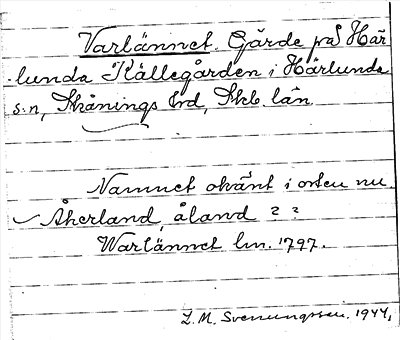 Varlännet. Gärde på Här
lunda Källegården i Härlunda
s:n, Skånings hd, Skb. län
Namnet okänt i orten nu.
Åkerland, åland ? ?
Warlännet lm. 1797.
L. M. Svenungsson. 1944,